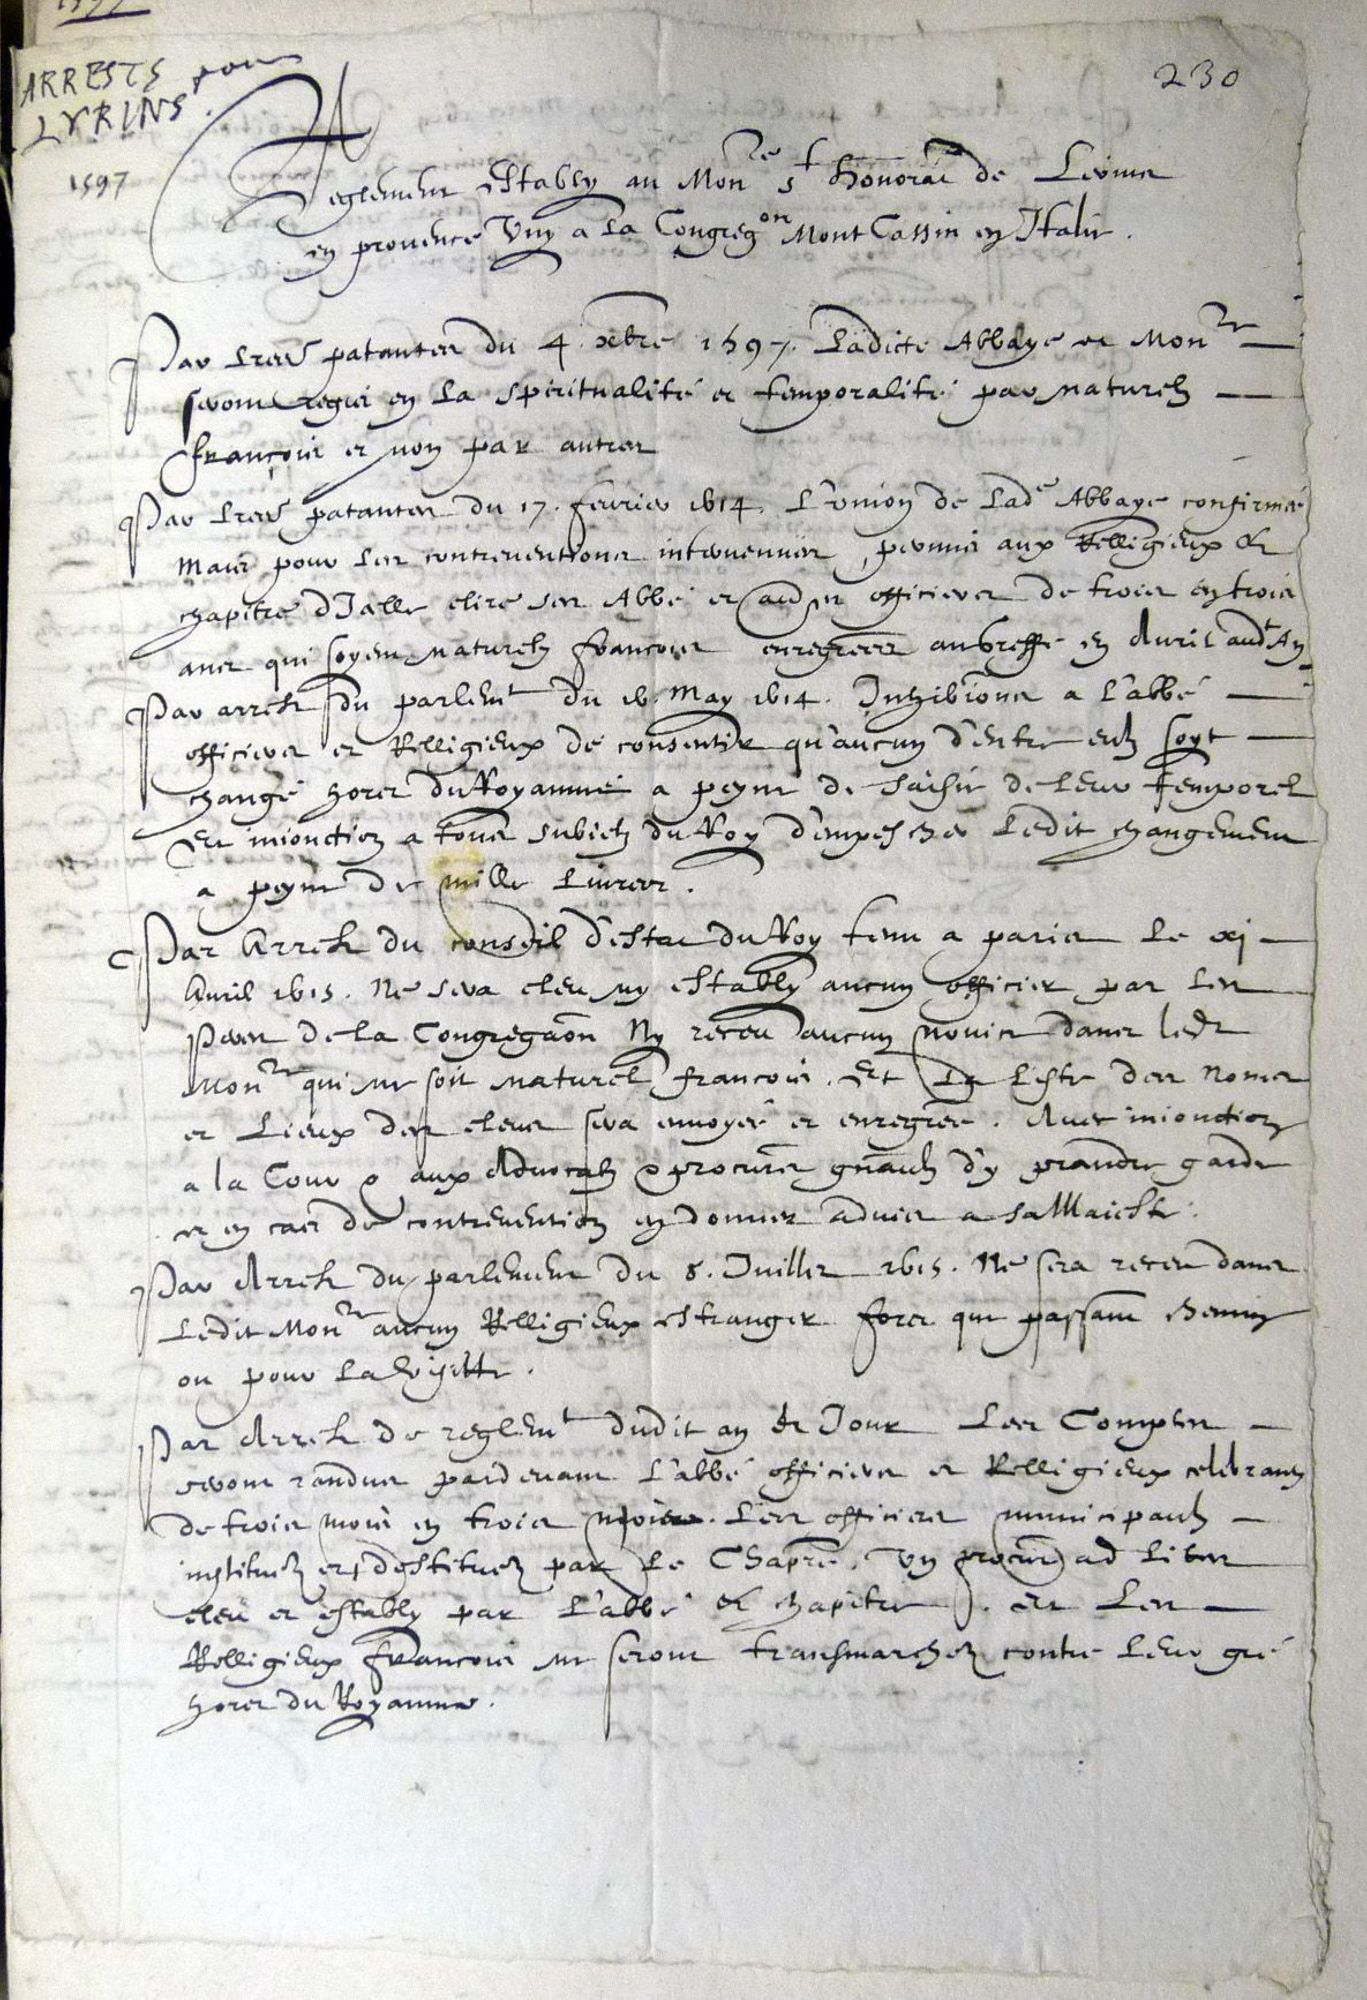 230
ARRESTS pour
LYRINS.
1597
Reglement estably au Mon.re st honorat de Lerins
en provence Vny a la Congreg.on Mont Cassin en Italie.
Par l'res patantes du 4. xbre 1597. Ladicte Abbaye et Mon.re
seront regies en la spiritualité et temporalité par naturelz
françois et non par autres
Par l'res patantes du 17. feurier 1614. L'vnion de Lad.e Abbaye confirmée
Mais pour les contreventions intervenues, permis aux Relligieux &
chapitre d'Icelle elire ses Abbé et officiers de trois en trois
ans qui soyent naturelz françois enregrées au Greffe en Auril aud.t An
Par arrest du parlem.t du 16. May 1614. Inhibi'ons a L'abbé
officiers et Relligieux de consentir qu'aucun d'entre eulx soyt
changé hors du Royaume a peyne de saisie de leur temporel
Et inionction a tous subiectz du Roy d'empescher Ledit changement
a peyne de mille Liures.
Par Arrest du conseil d'estat du Roy tenu a paris Le xj
Auril 1615. Ne sera eleu ny estably aucun officier par Les
Peres de la Congrega'on Ny receu aucun novice dans led.t
Mon.re qui ne soit naturel françois. Et La Liste des Noms
et Lieux des eleus sera envoyée et enregrée. Auec inionction
a la Cour & aux Aduocatz & procur'rs gn'aulx d'y prandre garde
et en cas de contreuention en donner aduis a sa Maiesté.
Par Arrest du parlement du 8. Juillet 1615. Ne sera receu dans
Ledit Mon.re aucun Relligieux estranger fors que passant chemin
ou pour La visitte.
Par Arrest de reglem.t dudit an & Jour Les Comptes
seront randus pardevant L'abbé officiers et Relligieux celebrantz
de trois mois en trois mois. Les officiers municipaulx
instituez et destituez par Le Chap're. Vn procur' ad lites
eleu et estably par L'abbé & chapitre. Et Les
Relligieux francois ne seront transmarchez contre Leur gré
hors du Royaume.